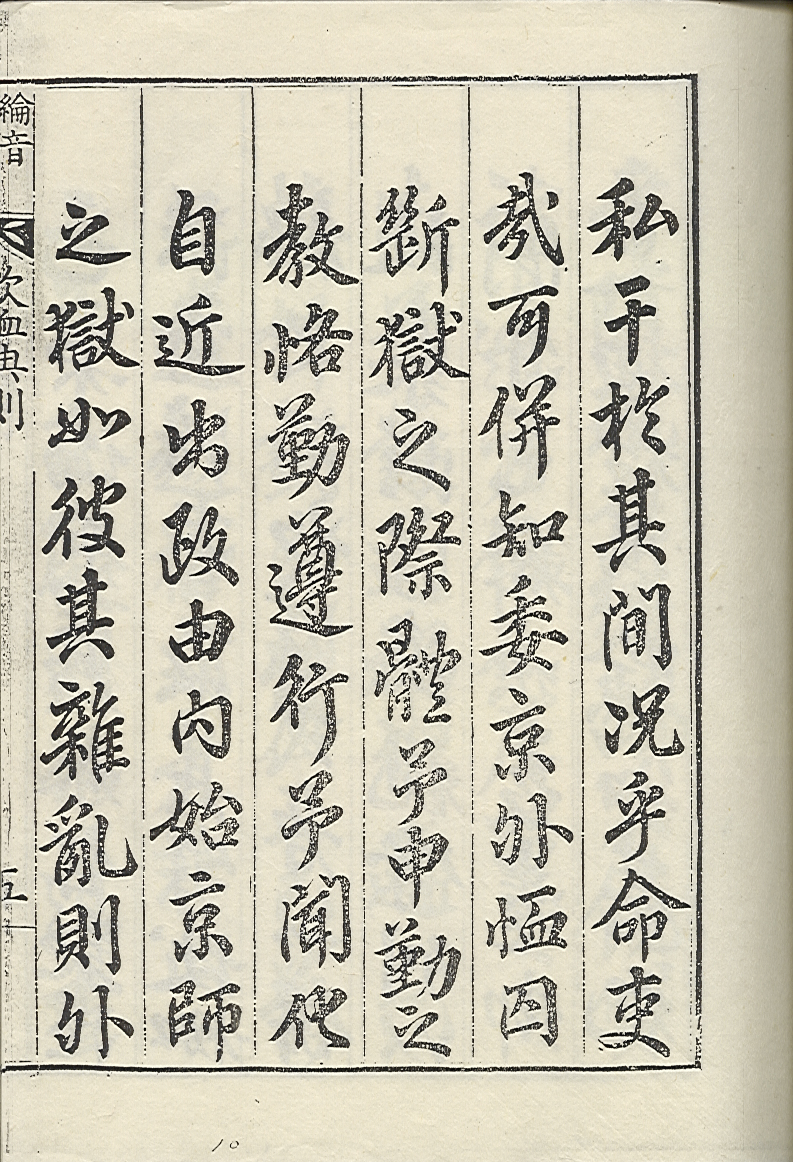 私干於其間況乎命吏
哉可併知委京外恤囚
斷獄之際體予申勤之
教恪勤遵行予聞化
自近出政由內始京師
之獄如彼其雜亂則外
綸音
欽恤典則
五
10